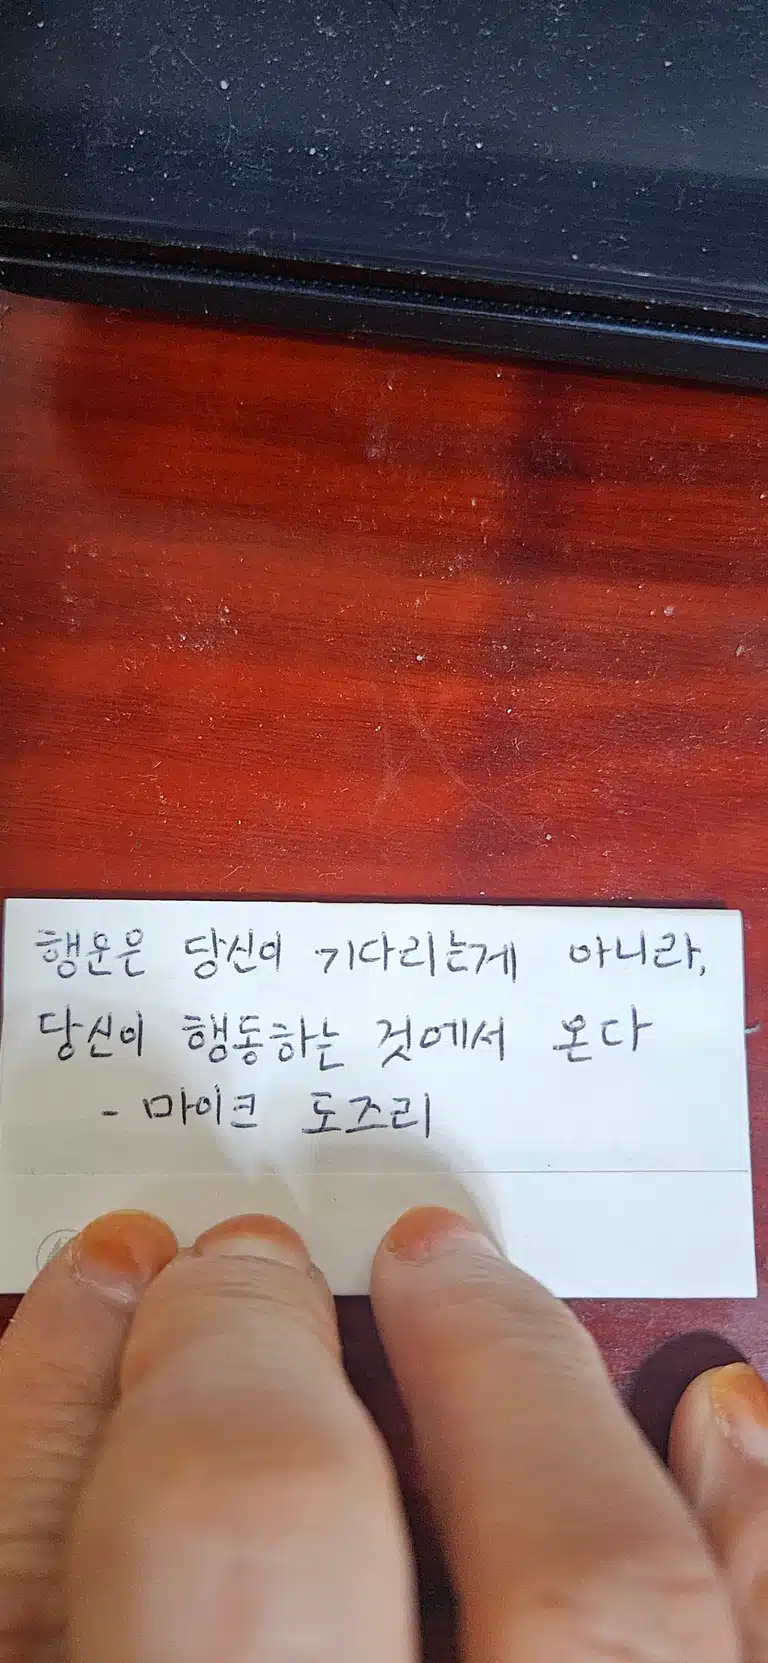 행운은 당신이 기다리는게 아니라,
당신이 행동하는 것에서 온다
- 마이크 도즈리